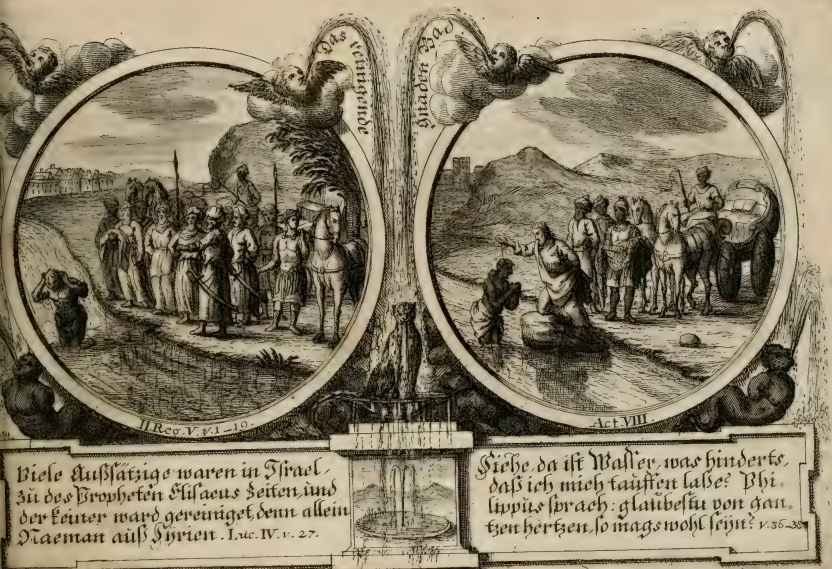 Das reinigende
Gnaden Bad
II Reg. V. v. 1-19.
Act. VIII.
Viele Außsätzige waren in Israel,
zu des Propheten Elisaeus Zeiten, und
der keiner ward gereiniget, denn allein
Naeman auß Syrien. Luc. IV. v. 27.
Siehe, da ist Wasser, was hinderts,
daß ich mich tauffen laße? Phi-
lippus sprach: glaubestu von gan-
tzen hertzen, so mags wohl seyn? v. 36-38